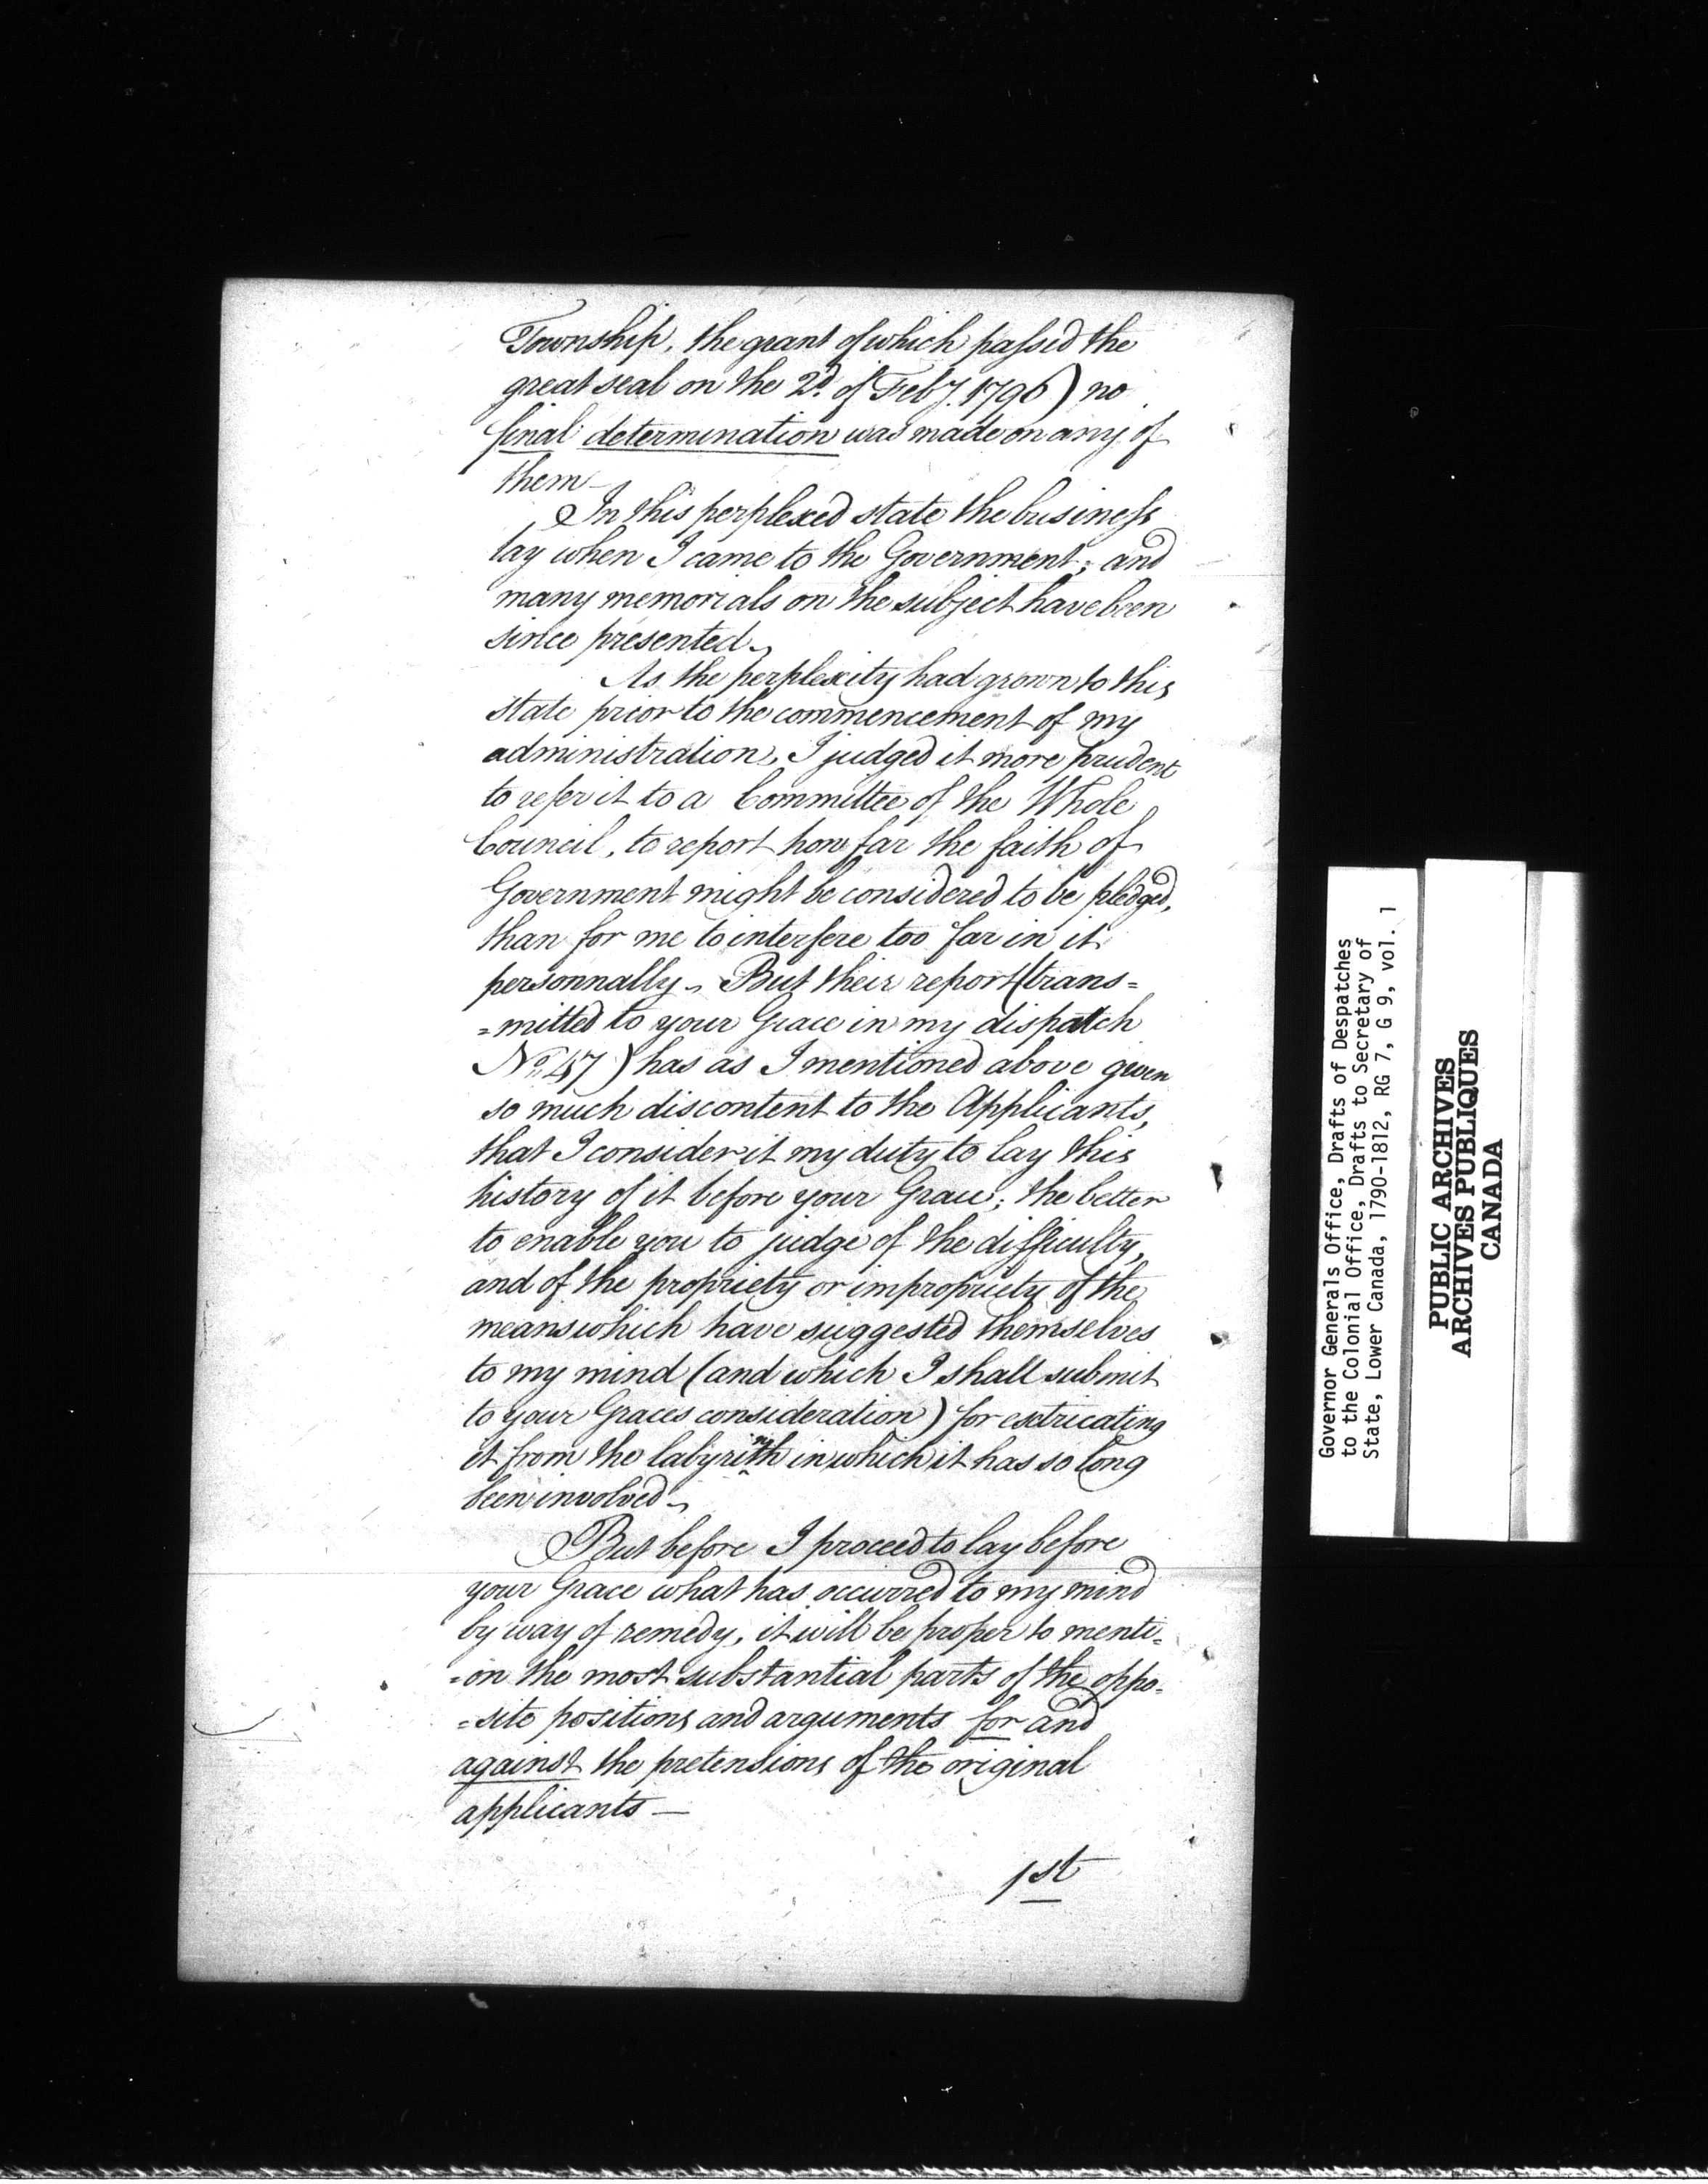 Township, the grant of which passed the
great seal on the 2d. of Feby. 1796) no
final determination was made on any of
them
In this perplexed state the business
lay when I came to the Government; and
many memorials on the subject have been
since presented
As the perplexity had grown to this
state prior to the commencement of my
administration, I judged it more prudent
to refer it to a Committee of the Whole
Council, to report how far the faith of
Government might be considered to be pledged,
than for me to interfere too far in it
personnally. But their report (trans=
=mitted to your Grace in my dispatch
No. 47) has as I mentioned above given
so much discontent to the Applicants,
that I consider it my duty to lay this
history of it before your Grace; the better
to enable you to judge of the difficulty,
and of the propriety or impropriety of the
means which have suggested themselves
to my mind (and which I shall submit
to your Graces consideration) for extricating
it from the labyrinth in which it has so long
been involved
But before I proceed to lay before
your Grace what has occurred to my mind
by way of remedy, it will be proper to menti=
=on the most substantial parts of the oppo=
=site positions and arguments for and
against the pretensions of the original
applicants —
1st
Governor Generals Office, Drafts of Despatches
to the Colonial Office, Drafts to Secretary of
State, Lower Canada, 1790-1812, RG 7, G 9, vol. 1
PUBLIC ARCHIVES
ARCHIVES PUBLIQUES
CANADA